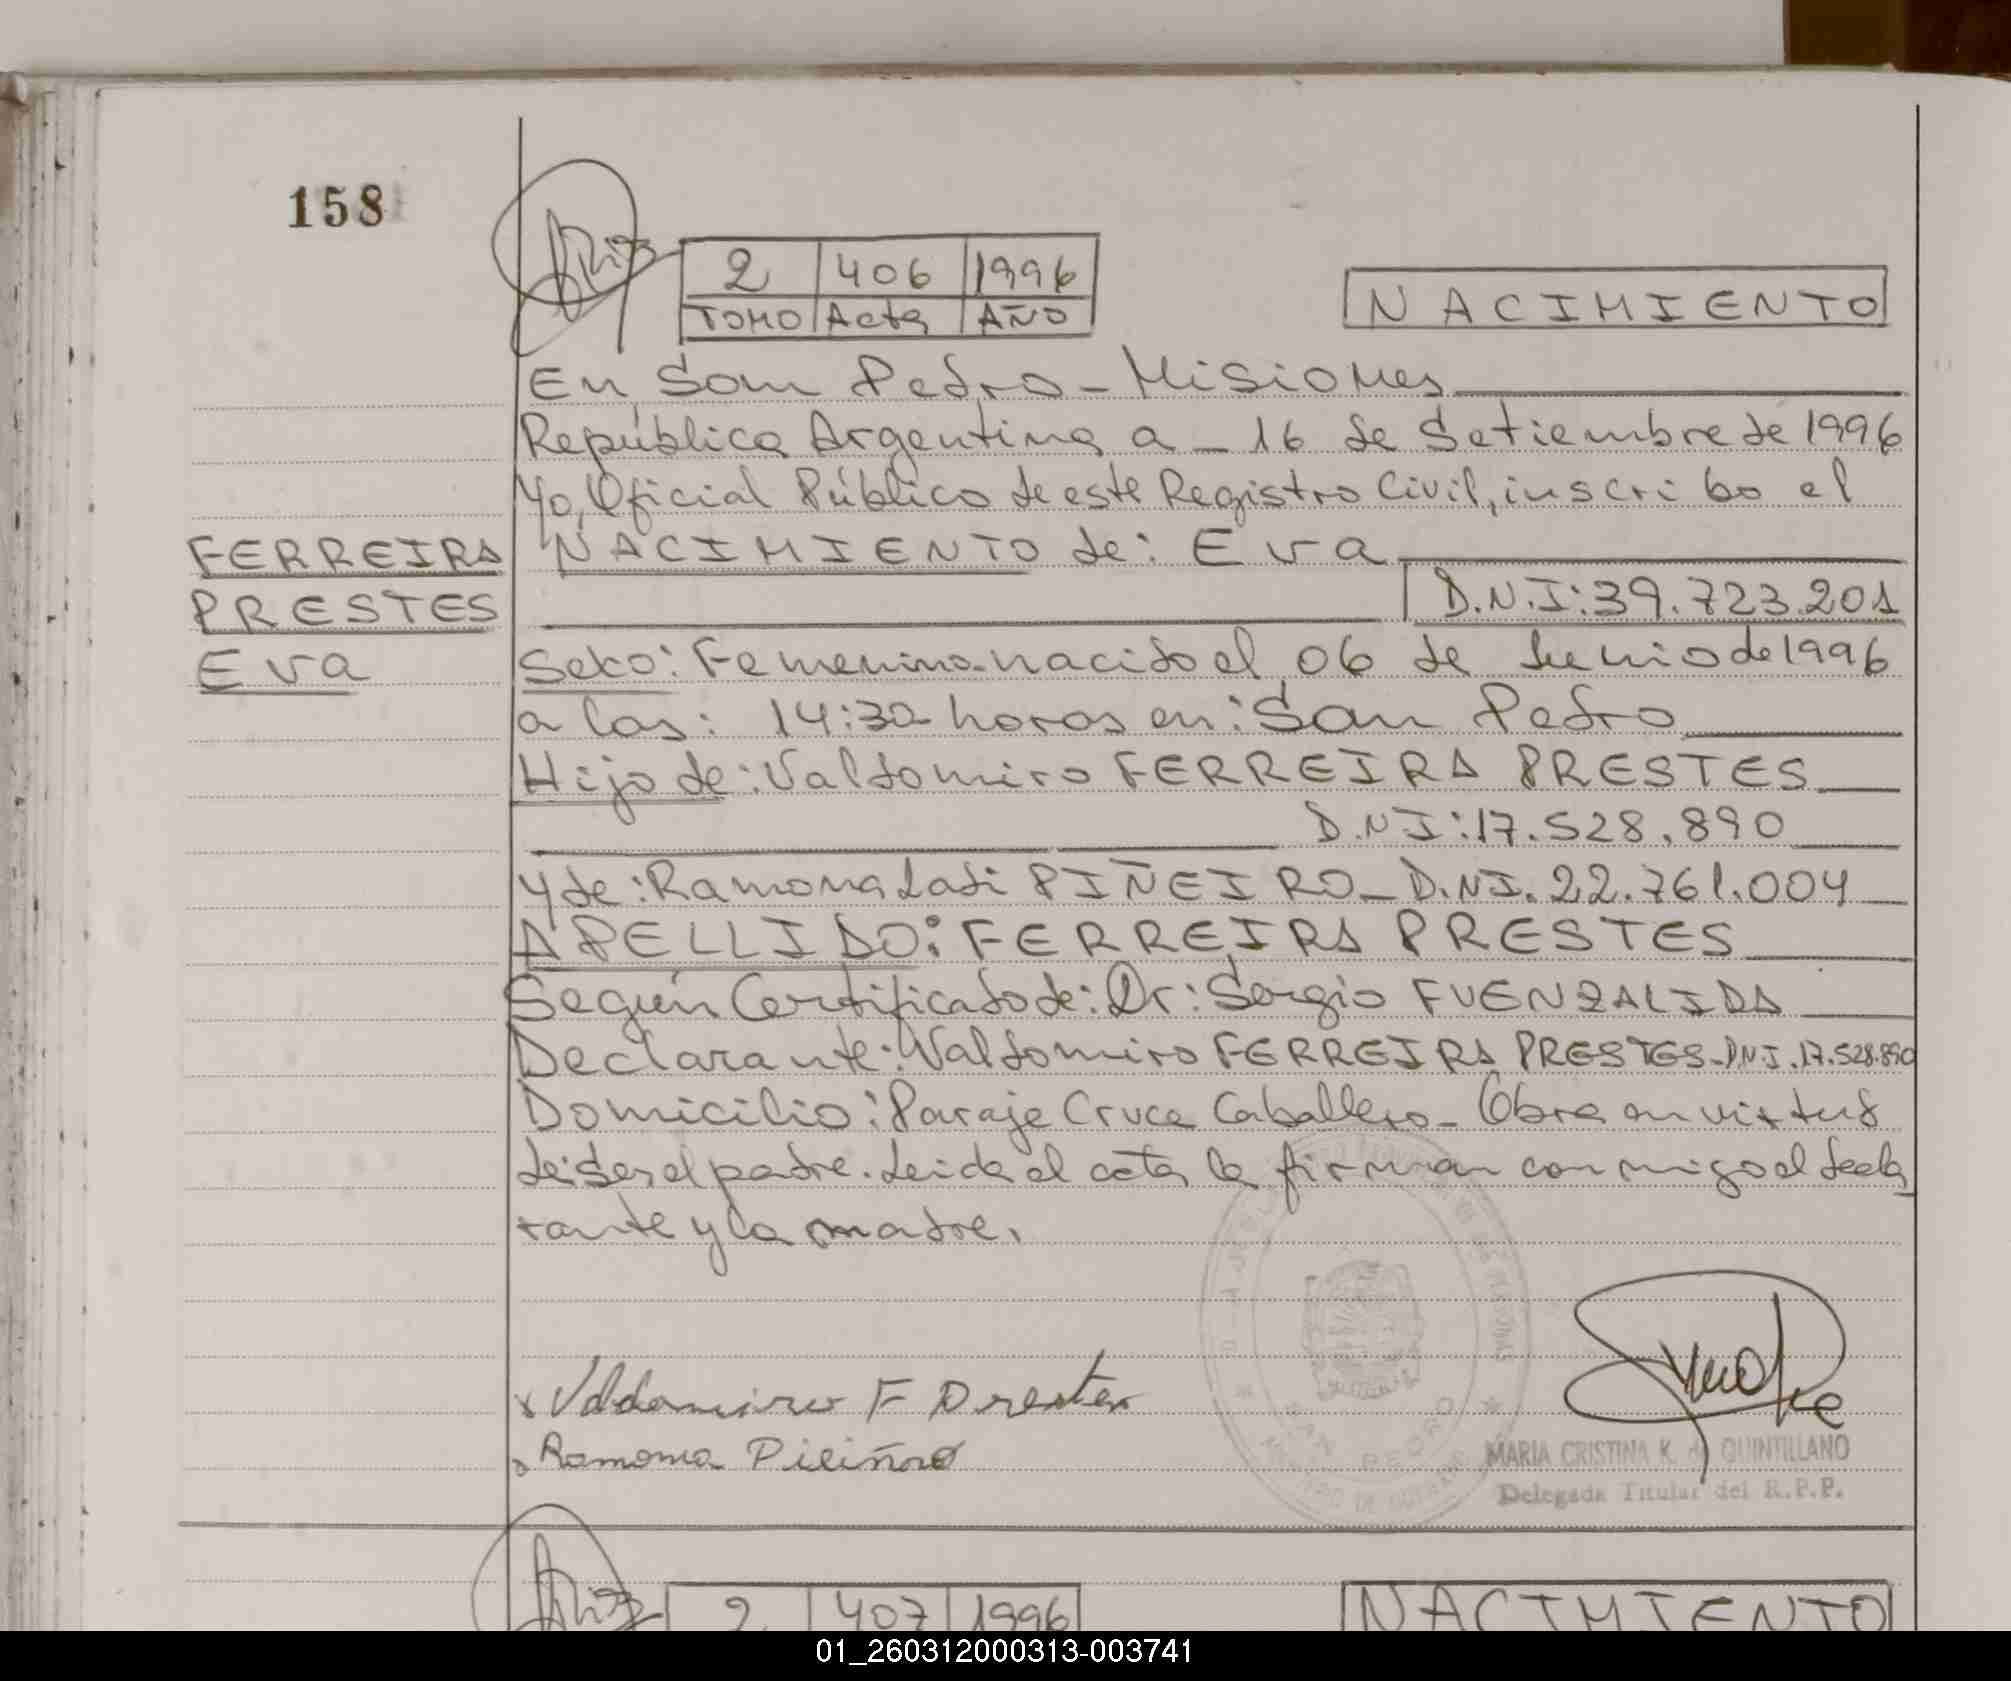 158
2 406 1996
TOMO Acta AÑO
NACIMIENTO
En San Pedro - Misiones
República Argentina a - 16 de Setiembre de 1996
Yo, Oficial Público de este Registro Civil, inscribo el
FERREIRA
PRESTES
Eva
NACIMIENTO de: Eva
D.N.I: 39.723.201
Sexo: Femenino nacido el 06 de Junio de 1996
a las: 14:30 horas en: San Pedro
Hijo de: Valdomiro FERREIRA PRESTES
D.N.I: 17.528.890
y de: Ramona Ladi PIÑEIRO - D.N.I. 22.761.004
APELLIDO: FERREIRA PRESTES
Según Certificado de: Dr: Sergio FUENZALIDA
Declarante: Valdomiro FERREIRA PRESTES - D.N.I. 17.528.890
Domicilio: Paraje Cruce Caballero - Obra en virtud
de ser el padre. Leida el acta la firman conmigo el decla
rante y la madre.
Valdomiro F Prestes
Ramona
SAN PEDRO
MARIA CRISTINA K. de QUINTILLANO
Delegada Titular del R.P.P.
2 407 1996
NACIMIENTO
01_260312000313-003741